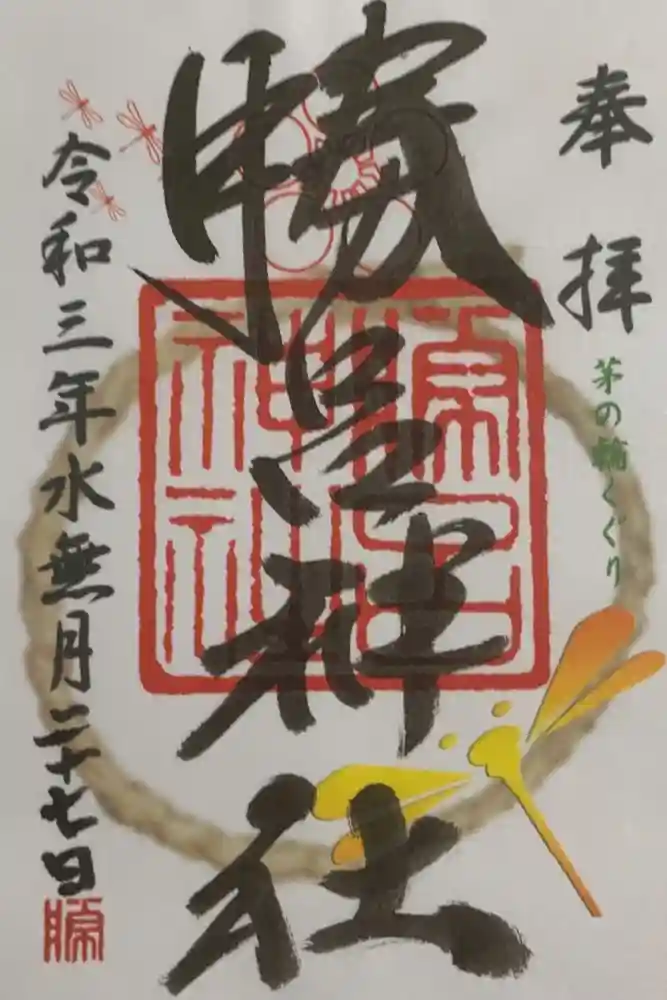 奉拝
茅の輪くぐり
勝呂神社
勝呂
神社
令和三年水無月二十七日
勝